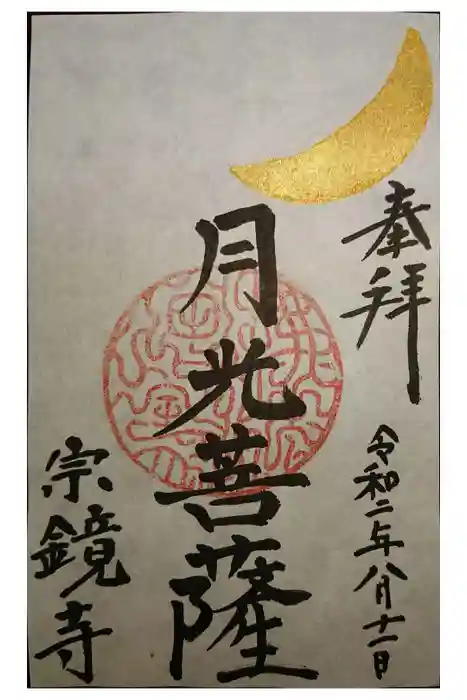 奉拝
令和二年八月十一日
月光菩薩
宗鏡寺